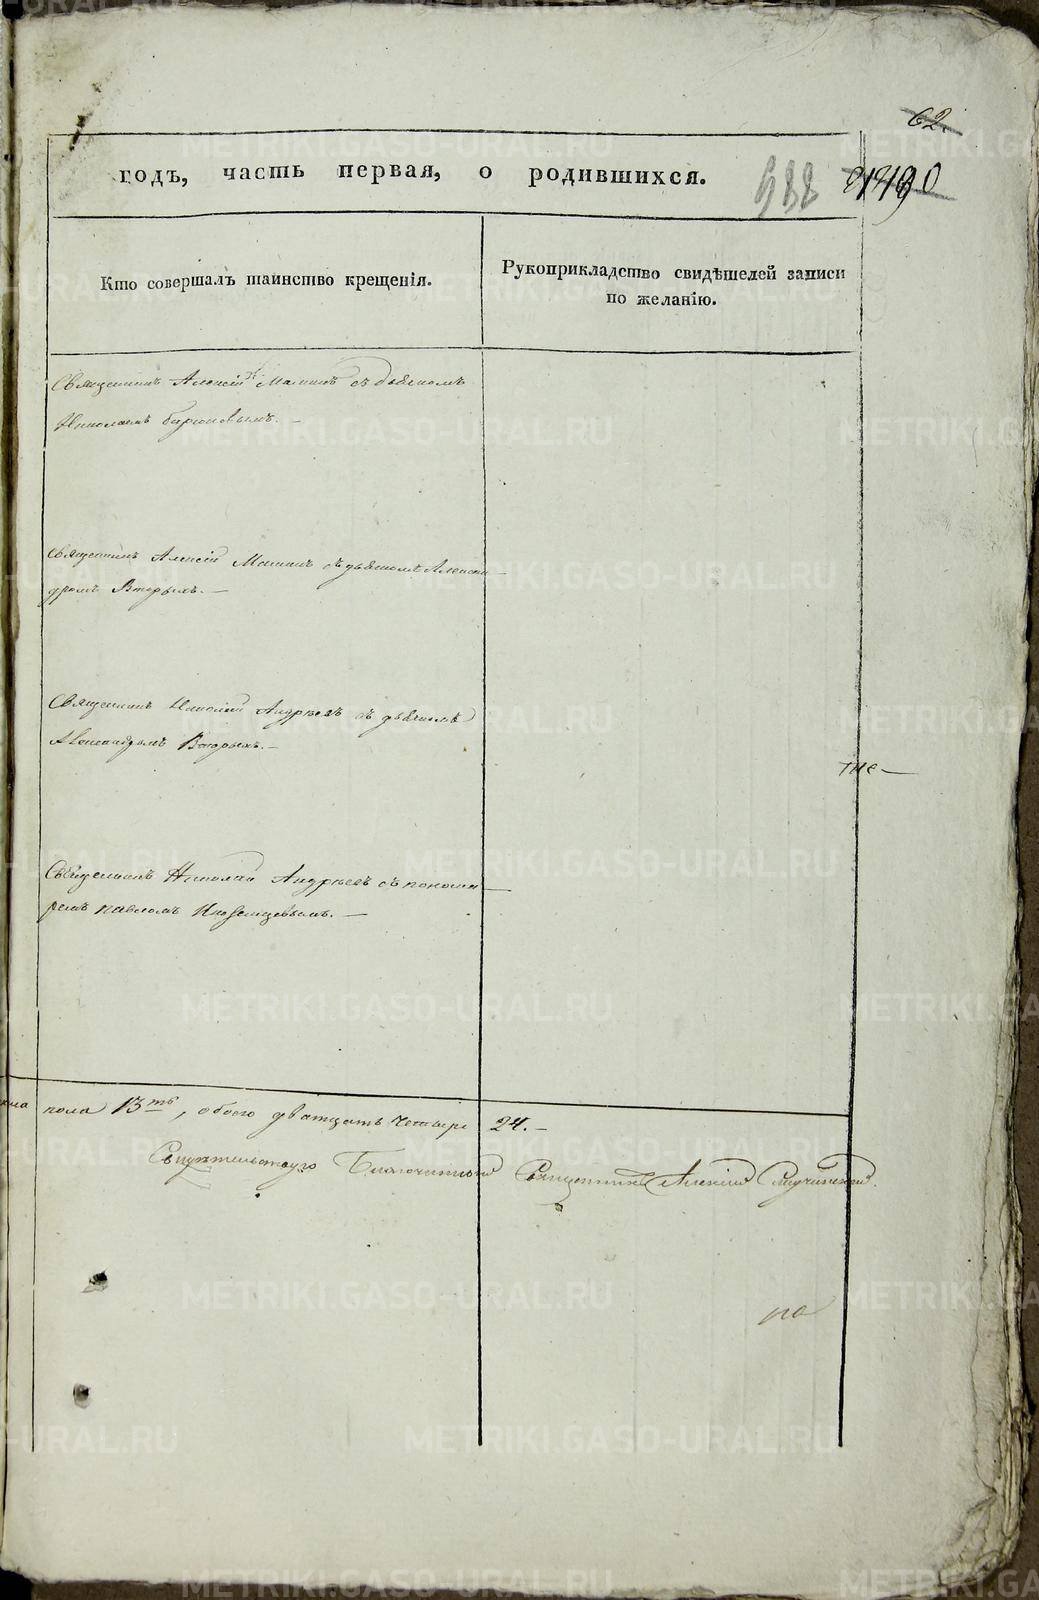 62.
годъ, часть первая, о родившихся.
988
Кто совершалъ таинство крещенія.
Рукоприкладство свидѣтелей записи
по желанію.
Священникъ Алексій Маминъ съ дьячкомъ
Николаемъ Бирюковымъ. —
Священникъ Алексій Маминъ съ дьякономъ Алексан
дромъ Вторыхъ. —
Священникъ Николай Андреевъ съ дьякономъ
Александромъ Вторыхъ. —
Священникъ Николай Андреевъ съ понома
ремъ Павломъ Иноземцовымъ. —
пола 13ть, обоего дватцать четыре 24. —
Свидѣтельствую Благочинный Священникъ Алексій
METRIKI.GASO-URAL.RU